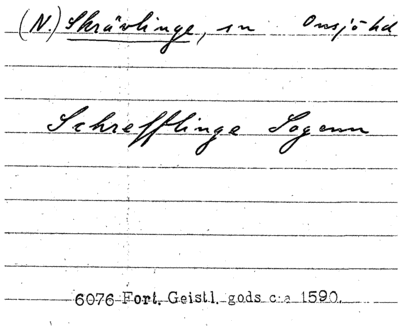 (N.) Skrävlinge, sn Onsjö hd
Schrefflinge Sogenn
6076 Fort. Geistl. gods c:a 1590.